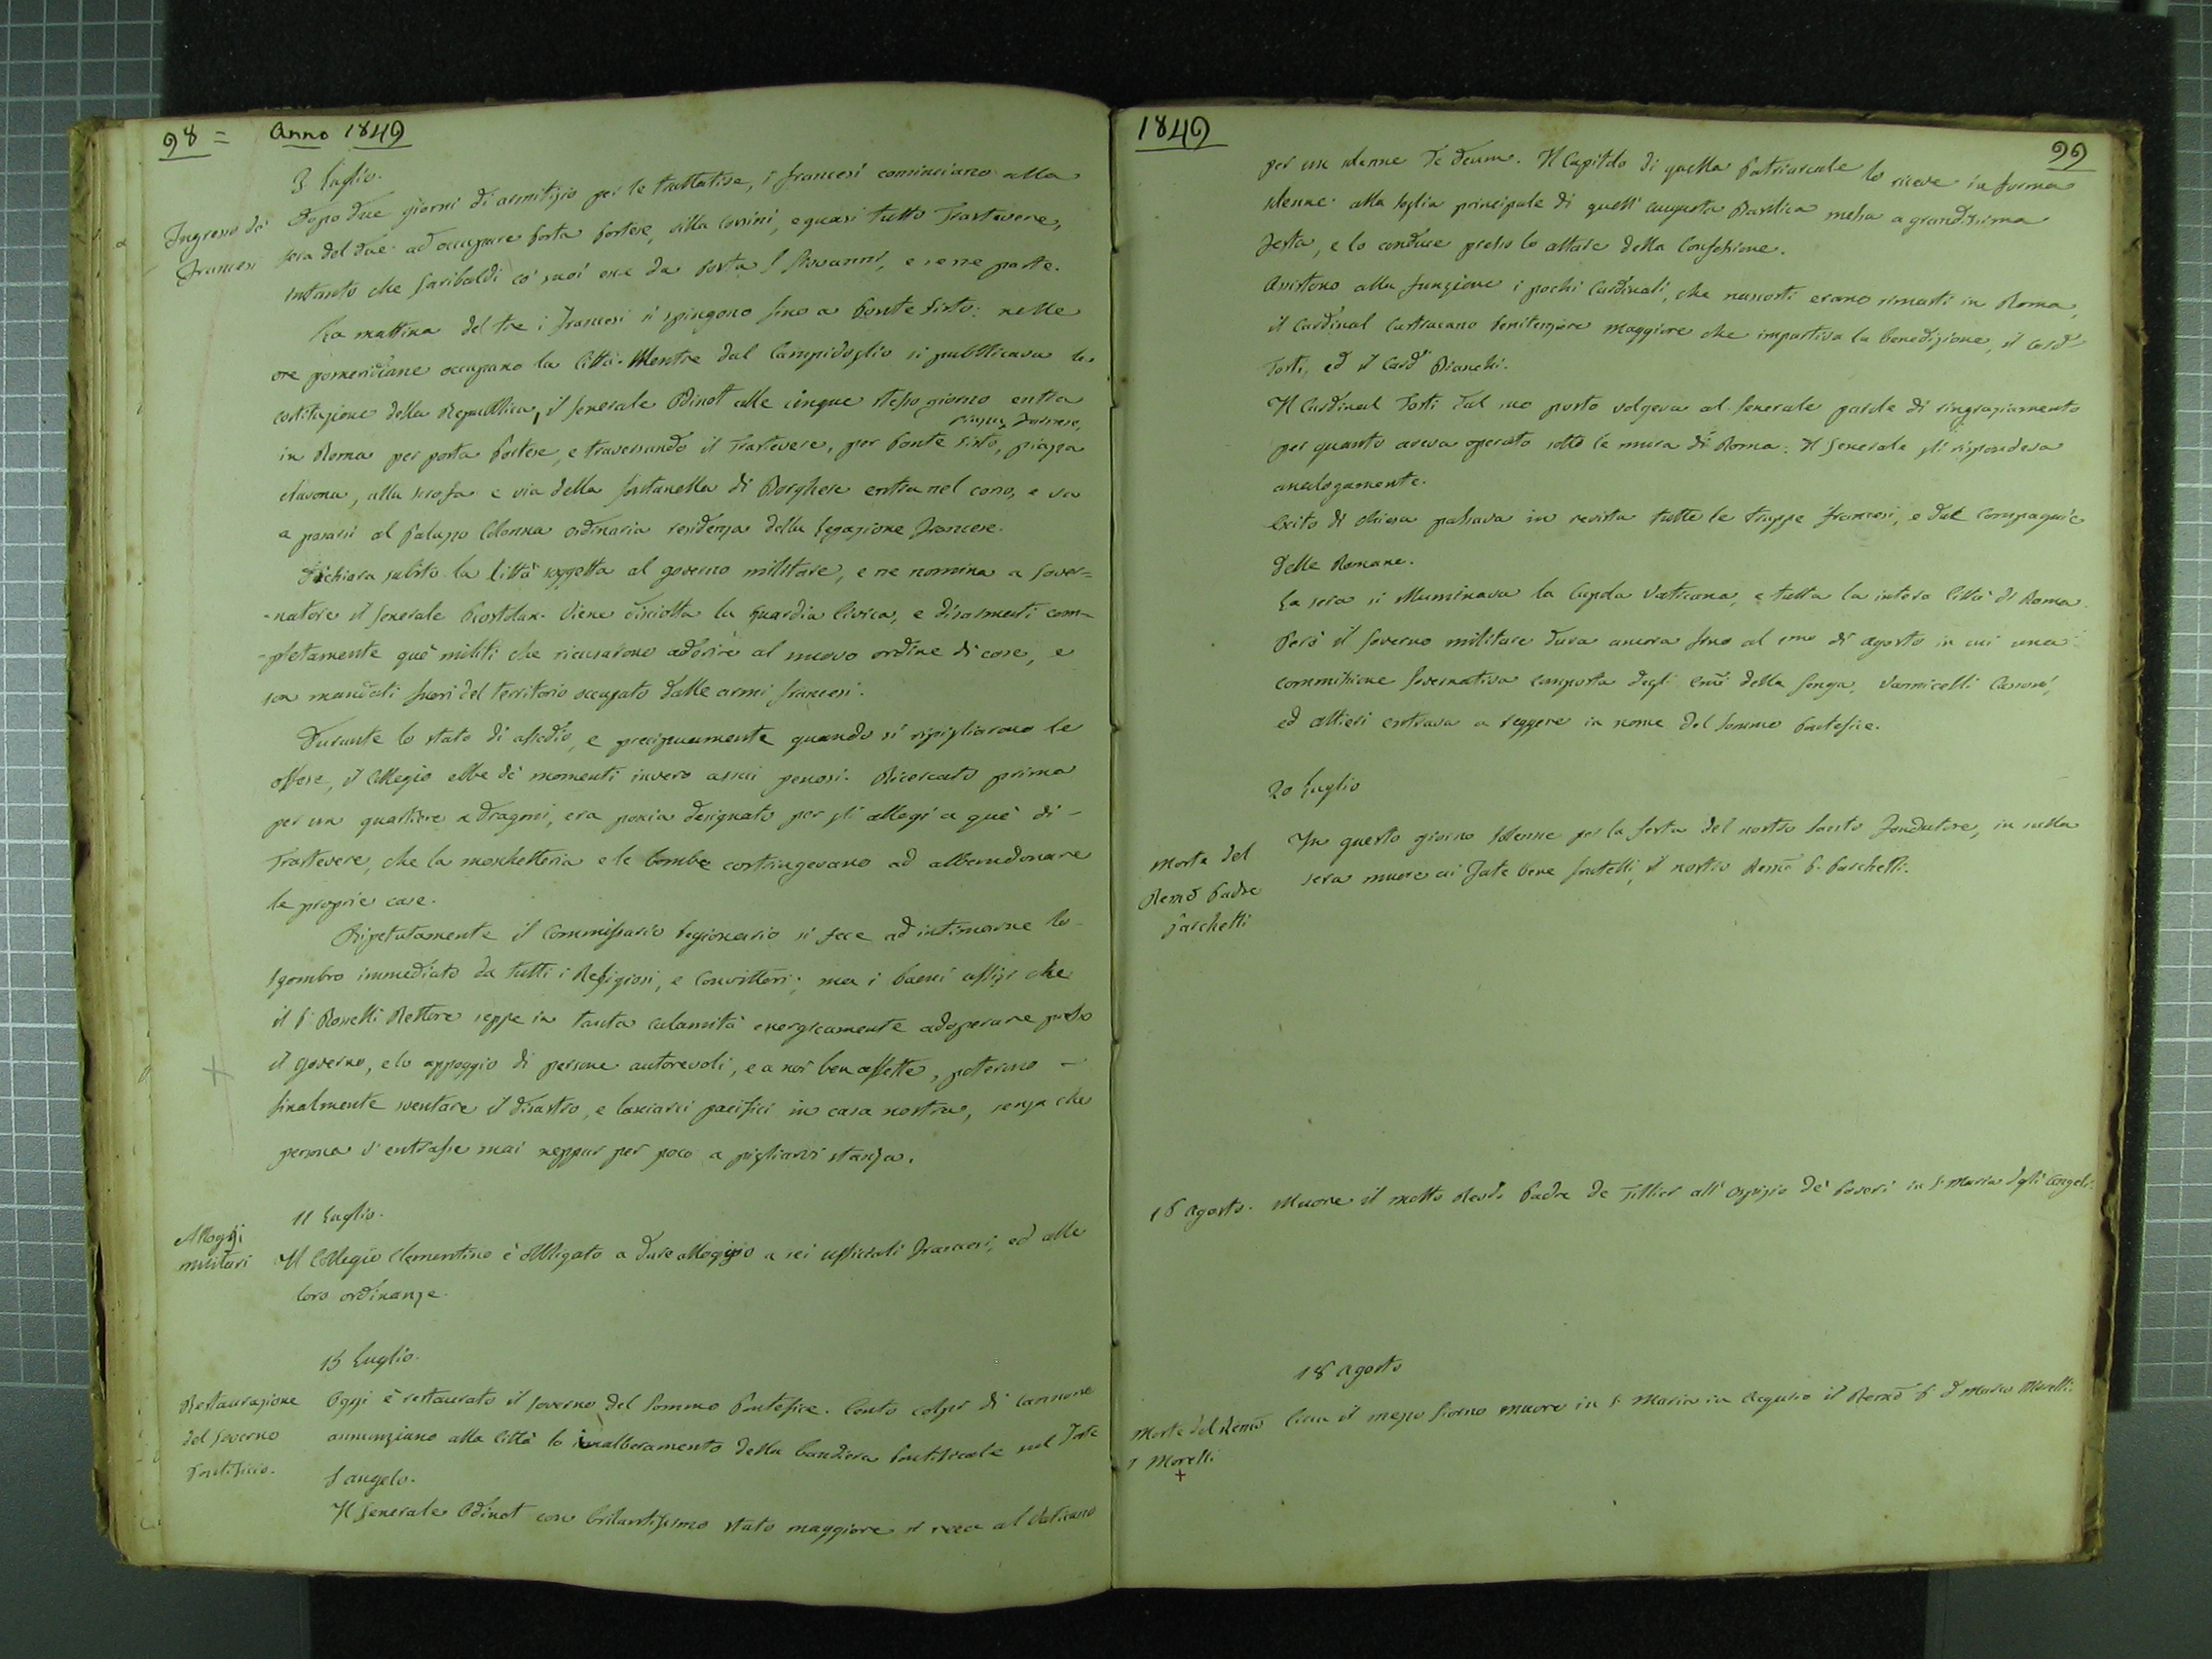 98 = Anno 1849
3 Luglio.
Ingresso de' Francesi
Dopo due giorni di armitizio per le trattative, i francesi cominciano alla
sera del due ad occupare Porta Portese, villa Corsini, e quasi tutto Trastevere,
intanto che Garibaldi co' suoi esce da Porta S Giovanni, e se ne parte.
La mattina del tre i Francesi si spingono sino a Ponte Sisto: nelle
ore pomeridiane occupano la Città. Mentre dal Campidoglio si pubblicava la
costituzione della Repubblica, il Generale Odinot alle cinque stesso giorno entra
in Roma per porta Portese, e traversando il Trastevere, per Ponte Sisto, piazza Farnese, piazza
Navona, alla scrofa e via della fontanella di Borghese entra nel corso, e va
a posarsi al Palazzo Colonna ordinaria residenza della Legazione Francese.
Dichiara subito la Città soggetta al governo militare, e ne nomina a Gover=
-natore il Generale Rostolan. Viene disciolta la guardia Civica, e disarmati com-
-pletamente que' militi che ricusarono aderire al nuovo ordine di cose, e
son mandati fuori del territorio occupato dalle armi francesi.
Durante lo stato di assedio, e precipuamente quando si ripigliarono le
offese, il Collegio ebbe de' momenti invero assai penosi. Ricercato prima
per un quartiere a Dragoni, era poscia designato per gli allogi a que' di -
Trastevere, che la moschetteria e le bombe costringevano ad abbandonare
le proprie case.
Ripetutamente il Commissario Regionario si fece ad intimarne lo
sgombro immediato da tutti i Religiosi, e Convittori; ma i buoni uffizi che
il P. Rosselli Rettore seppe in tanta calamità energicamente adoperare presso
il governo, e lo appoggio di persone autorevoli, e a noi ben affette, poterono -
finalmente sventare il disastro, e lasciarci pacifici in casa nostra, senza che
persona v'entrasse mai neppur per poco a pigliarvi stanza.
11 Luglio.
Alloggi militari
Il Collegio Clementino è obbligato a dare alloggio a sei uffiziali francesi, ed alle
loro ordinanze.
15 Luglio.
Restaurazione del Governo Pontificio.
Oggi è restaurato il Governo del Sommo Pontefice. Cento colpi di cannone
annunziano alla città lo inalberamento della bandiera Pontificale sul Forte
S angelo.
Il Generale Odinot con brilantissimo stato maggiore si reca al Vaticano
1849 99
per un solenne Te deum. Il Capitolo di quella Patriarcale lo riceve in forma
solenne alla soglia principale di quell' augusta Basilica messa a grandissima
festa, e lo conduce presso lo altare della Confessione.
Assistono alla funzione i pochi Cardinali, che nascosti erano rimasti in Roma,
il Cardinal Castracane Penitenziere Maggiore che impartiva la benedizione, il Card.
Tosti, ed il Card. Bianchi.
Il Cardinal Tosti dal suo posto volgeva al Generale parole di ringraziamento
per quanto aveva operato sotto le mura di Roma. Il Generale gli rispondeva
analogamente.
Escito di chiesa passava in revista tutte le truppe francesi, e due compagnie
delle Romane.
La sera si illuminava la Cupola Vaticana, e tutta la intera Città di Roma.
Però il Governo militare dura ancora sino al uno di agosto in cui una
commissione Governativa composta degli Emi della Genga, Vannicelli Casoni,
ed Altieri entrava a reggere in nome del Sommo Pontefice.
20 Luglio
Morte del Remo Padre Parchetti
In questo giorno solenne per la festa del nostro Santo Fondatore, in sulla
sera muore ai Fate bene fratelli, il nostro Remo P. Parchetti.
16 Agosto. Muore il molto Revdo Padre de Tillier all' ospizio de' Poveri in S. Maria degli Angeli.
18 Agosto
Morte del Remo P Morelli
Circa il mezzo Giorno muore in S. Maria in Aquiro il Remo P. D Marco Morelli.